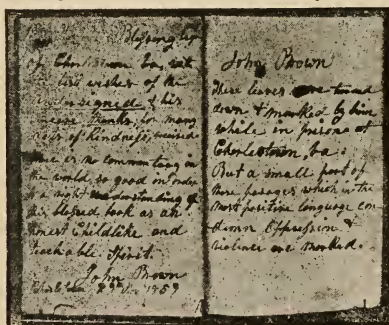 of
best wishes of the
undersigned & his
sincere thanks, for many
acts of kindness received
There is no commentary on
the world so good in order
to a right understanding of
this blessed book as an
honest Childlike and
teachable Spirit.
John Brown
1859
John Brown
These leaves were turned
down & marked by him
while in prison at
Charlestown, Va:
But a small part of
those passages which in the
most positive language con
demn Oppression &
violence are marked.